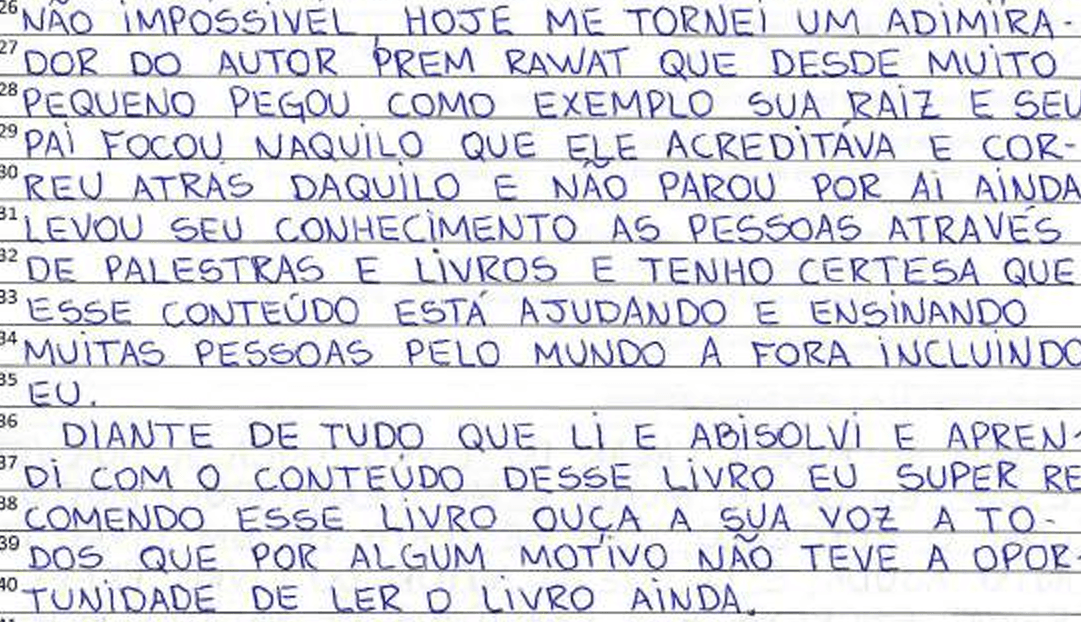 26 NÃO IMPOSSIVEL, HOJE ME TORNEI UM ADIMIRA-
27 DOR DO AUTOR PREM RAWAT QUE DESDE MUITO
28 PEQUENO PEGOU COMO EXEMPLO SUA RAIZ E SEU
29 PAI FOCOU NAQUILO QUE ELE ACREDITÁVA E COR-
30 REU ATRÁS DAQUILO E NÃO PAROU POR AI AINDA
31 LEVOU SEU CONHECIMENTO AS PESSOAS ATRAVÉS
32 DE PALESTRAS E LIVROS E TENHO CERTESA QUE
33 ESSE CONTEÚDO ESTÁ AJUDANDO E ENSINANDO
34 MUITAS PESSOAS PELO MUNDO A FORA INCLUINDO
35 EU.
36 DIANTE DE TUDO QUE LI E ABISOLVI E APREN-
37 DI COM O CONTEÚDO DESSE LIVRO EU SUPER RE
38 COMENDO ESSE LIVRO OUÇA A SUA VOZ A TO-
39 DOS QUE POR ALGUM MOTIVO NÃO TEVE A OPOR-
40 TUNIDADE DE LER O LIVRO AINDA.